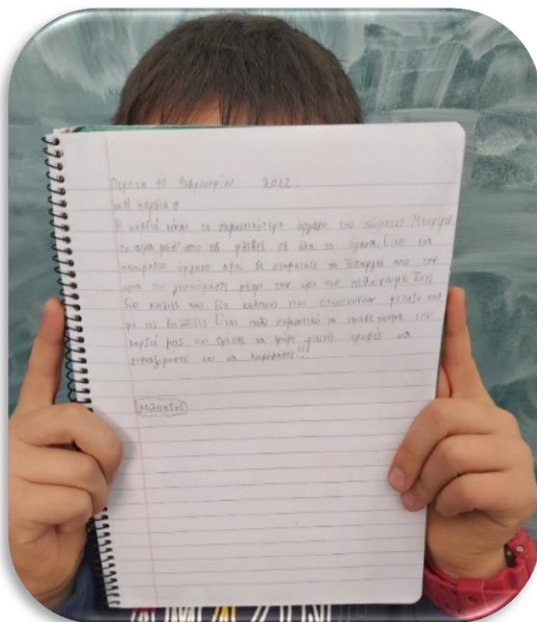 Πέμπτη 10 Φεβρουαρίου 2022.
«Η καρδιά»
Η καρδιά είναι το σημαντικότερο όργανο του σώματος. Μεταφέρει
το αίμα μέσ' από τις φλέβες σε όλα τα όργανα. Είναι ένα
ακούραστο όργανο αφού δε σταματάει να λειτουργεί από την
ώρα που γεννιόμαστε μέχρι την ώρα που πεθαίνουμε. Έχει
δύο κοιλίες και δύο κόλπους που επικοινωνούν μεταξύ τους
με τις βαλβίδες. Είναι πολύ σημαντικό να προσέχουμε την
καρδιά μας και πρέπει να τρώμε υγιεινές τροφές να
γυμναζόμαστε και να
Μιλτιάδης